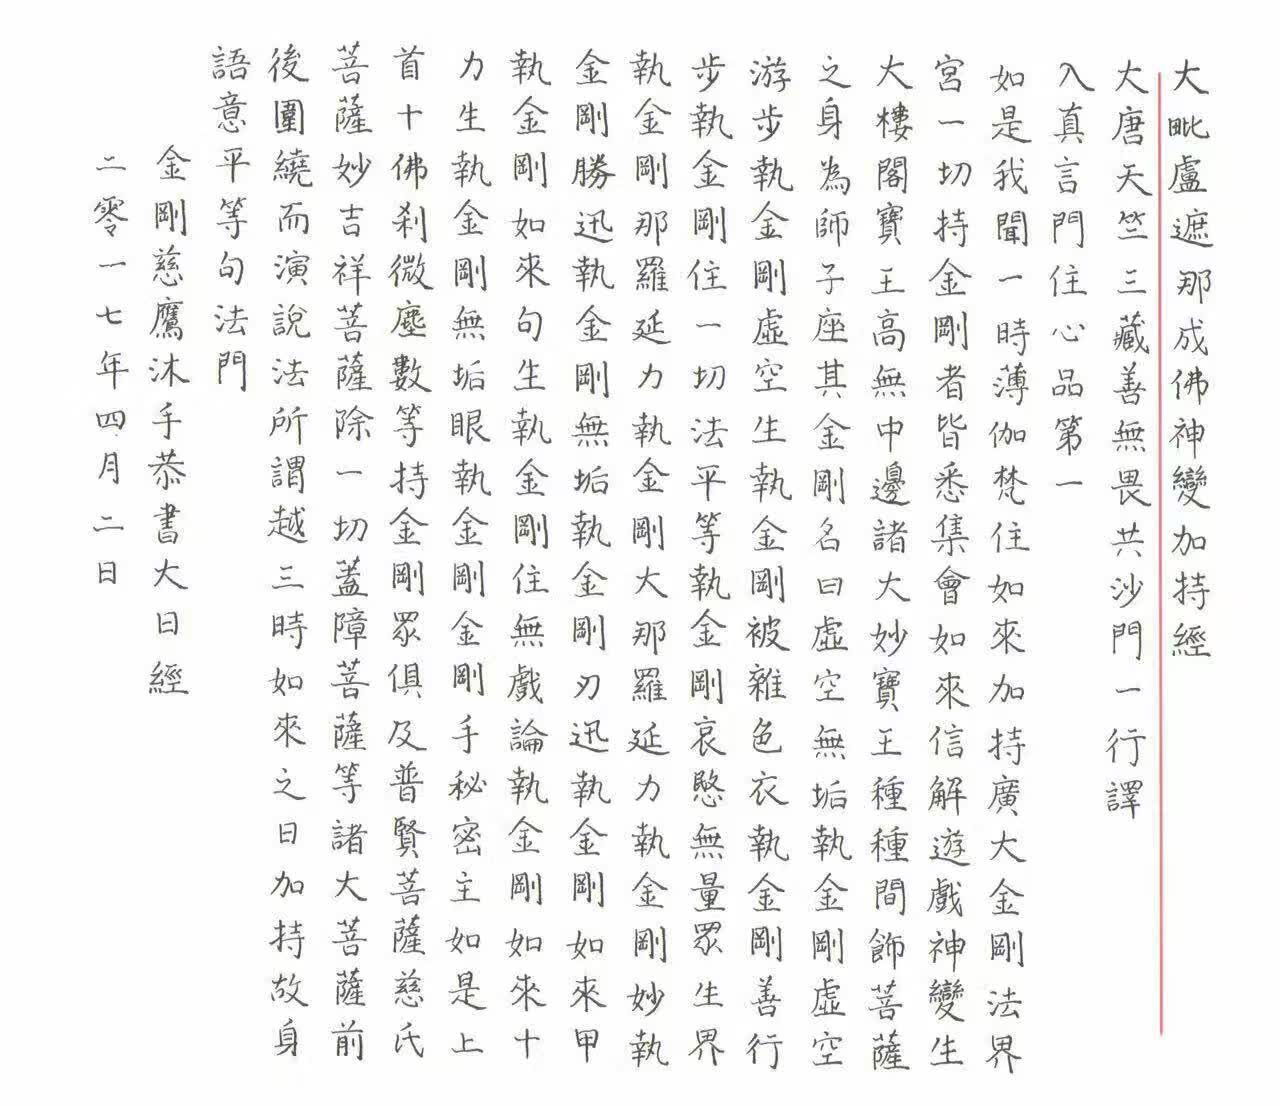 大毗盧遮那成佛神變加持經
大唐天竺三藏善無畏共沙門一行譯
入真言門住心品第一
如是我聞一時薄伽梵住如來加持廣大金剛法界
宮一切持金剛者皆悉集會如來信解遊戲神變生
大樓閣寶王高無中邊諸大妙寶王種種間飾菩薩
之身為師子座其金剛名曰虛空無垢執金剛虛空
游步執金剛虛空生執金剛被雜色衣執金剛善行
步執金剛住一切法平等執金剛哀愍無量眾生界
執金剛那羅延力執金剛大那羅延力執金剛妙執
金剛勝迅執金剛無垢執金剛刃迅執金剛如來甲
執金剛如來句生執金剛住無戲論執金剛如來十
力生執金剛無垢眼執金剛金剛手秘密主如是上
首十佛剎微塵數等持金剛眾俱及普賢菩薩慈氏
菩薩妙吉祥菩薩除一切蓋障菩薩等諸大菩薩前
後圍繞而演說法所謂越三時如來之日加持故身
語意平等句法門
金剛慈鷹沐手恭書大日經
二零一七年四月二日